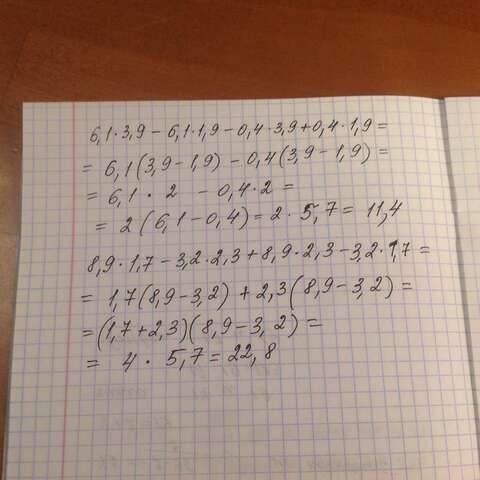 6,1·3,9 − 6,1·1,9 − 0,4·3,9 + 0,4·1,9 =
= 6,1(3,9 − 1,9) − 0,4(3,9 − 1,9) =
= 6,1 · 2 − 0,4·2 =
= 2(6,1 − 0,4) = 2 · 5,7 = 11,4
8,9·1,7 − 3,2·2,3 + 8,9·2,3 − 3,2·1,7 =
= 1,7(8,9 − 3,2) + 2,3(8,9 − 3,2) =
= (1,7 + 2,3)(8,9 − 3,2) =
= 4 · 5,7 = 22,8